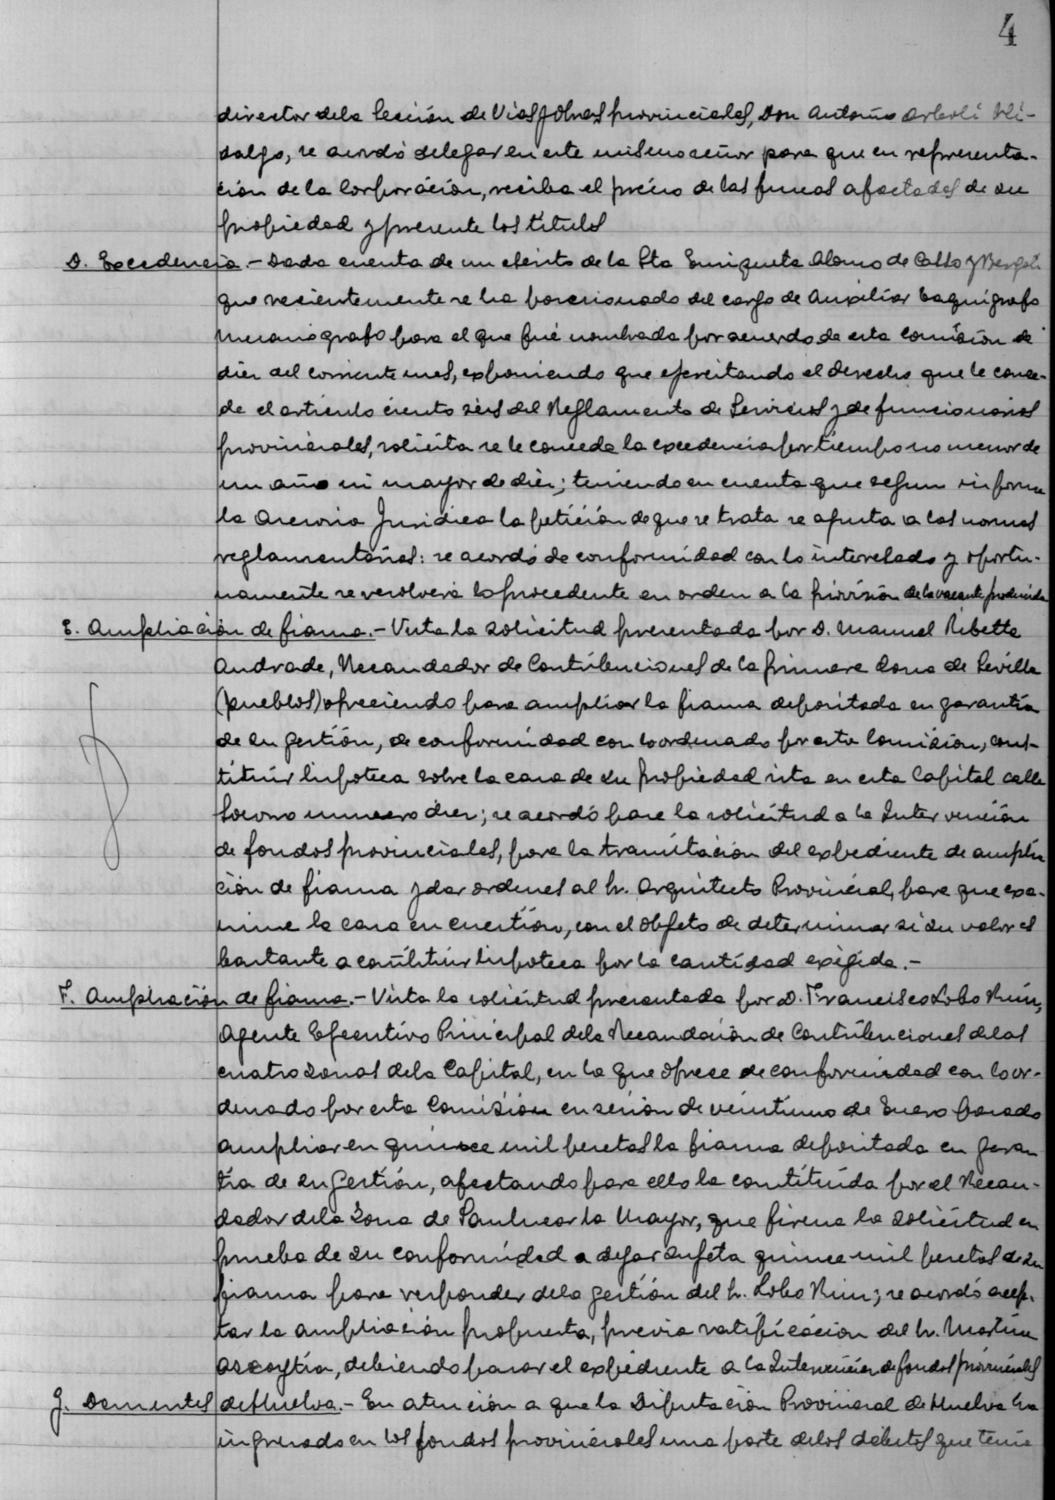 4
director dela Sección de Vias y Obras provinciales, Don Antonio Arbolí Hi-
dalgo, se acordó delegar en este mismo señor para que en representa-
ción de la Corporación, reciba el precio de las fincas afectadas de su
propiedad y presente los títulos
D. Excedencia.- Dada cuenta de un escrito de la Sta Enriqueta Alamo de Cobo y
que recientemente se ha posesionado del cargo de Auxiliar taquígrafo
mecanografo para el que fué nombrada por acuerdo de esta Comisión de
diez del corriente mes, exponiendo que ejercitando el derecho que le conce-
de el artículo ciento seis del Reglamento de Servicios y de funcionarios
provinciales, solicita se le conceda la excedencia por tiempo no menor de
un año ni mayor de diez; teniendo en cuenta que segun informa
la Asesoria Juridica la petición de que se trata se ajusta a las normas
reglamentarias: se acordó de conformidad con lo interesado y oportu-
namente se resolverá lo procedente en orden a la provisión de la vacante producida
E. Ampliación de fianza.- Vista la solicitud presentada por D. Manuel Ribette
Andrade, Recaudador de Contribuciones de la primera Zona de Sevilla
(pueblos) ofreciendo para ampliar la fianza depositada en garantía
de su gestión, de conformidad con lo ordenado por esta Comisión, cons-
tituir hipoteca sobre la casa de su propiedad sita en esta Capital calle
Socorro numero diez; se acordó pase la solicitud a la Intervención
de fondos provinciales, para la tramitación del expediente de amplia
ción de fianza y dar ordenes al Sr. Arquitecto Provincial, para que exa-
mine la casa en cuestión, con el objeto de determinar si su valor es
bastante a constituir hipoteca por la cantidad exigida.-
F. Ampliación de fianza.- Vista la solicitud presentada por D. Francisco Lobo Ruiz,
Agente Ejecutivo Principal dela Recaudación de Contribuciones delas
cuatro zonas dela Capital, en la que ofrece de conformidad con lo or-
denado por esta Comisión en sesión de veintiuno de Enero pasado
ampliar en quince mil pesetas la fianza depositada en garan
tía de su gestión, afectando para ello la constituída por el Recau-
dador dela Zona de Sanlucar la Mayor, que firma la solicitud en
prueba de su conformidad a dejar sujeta quince mil pesetas de su
fianza para responder dela gestión del Sr. Lobo Ruiz; se acordó acep-
tar la ampliación propuesta, previa ratificación del Sr. Martín
Ascoytia, debiendo pasar el expediente a la Intervención de fondos provinciales
G. Dementes de Huelva.- En atención a que la Diputación Provincial de Huelva ha
ingresado en los fondos provinciales una parte delos débitos que tenía